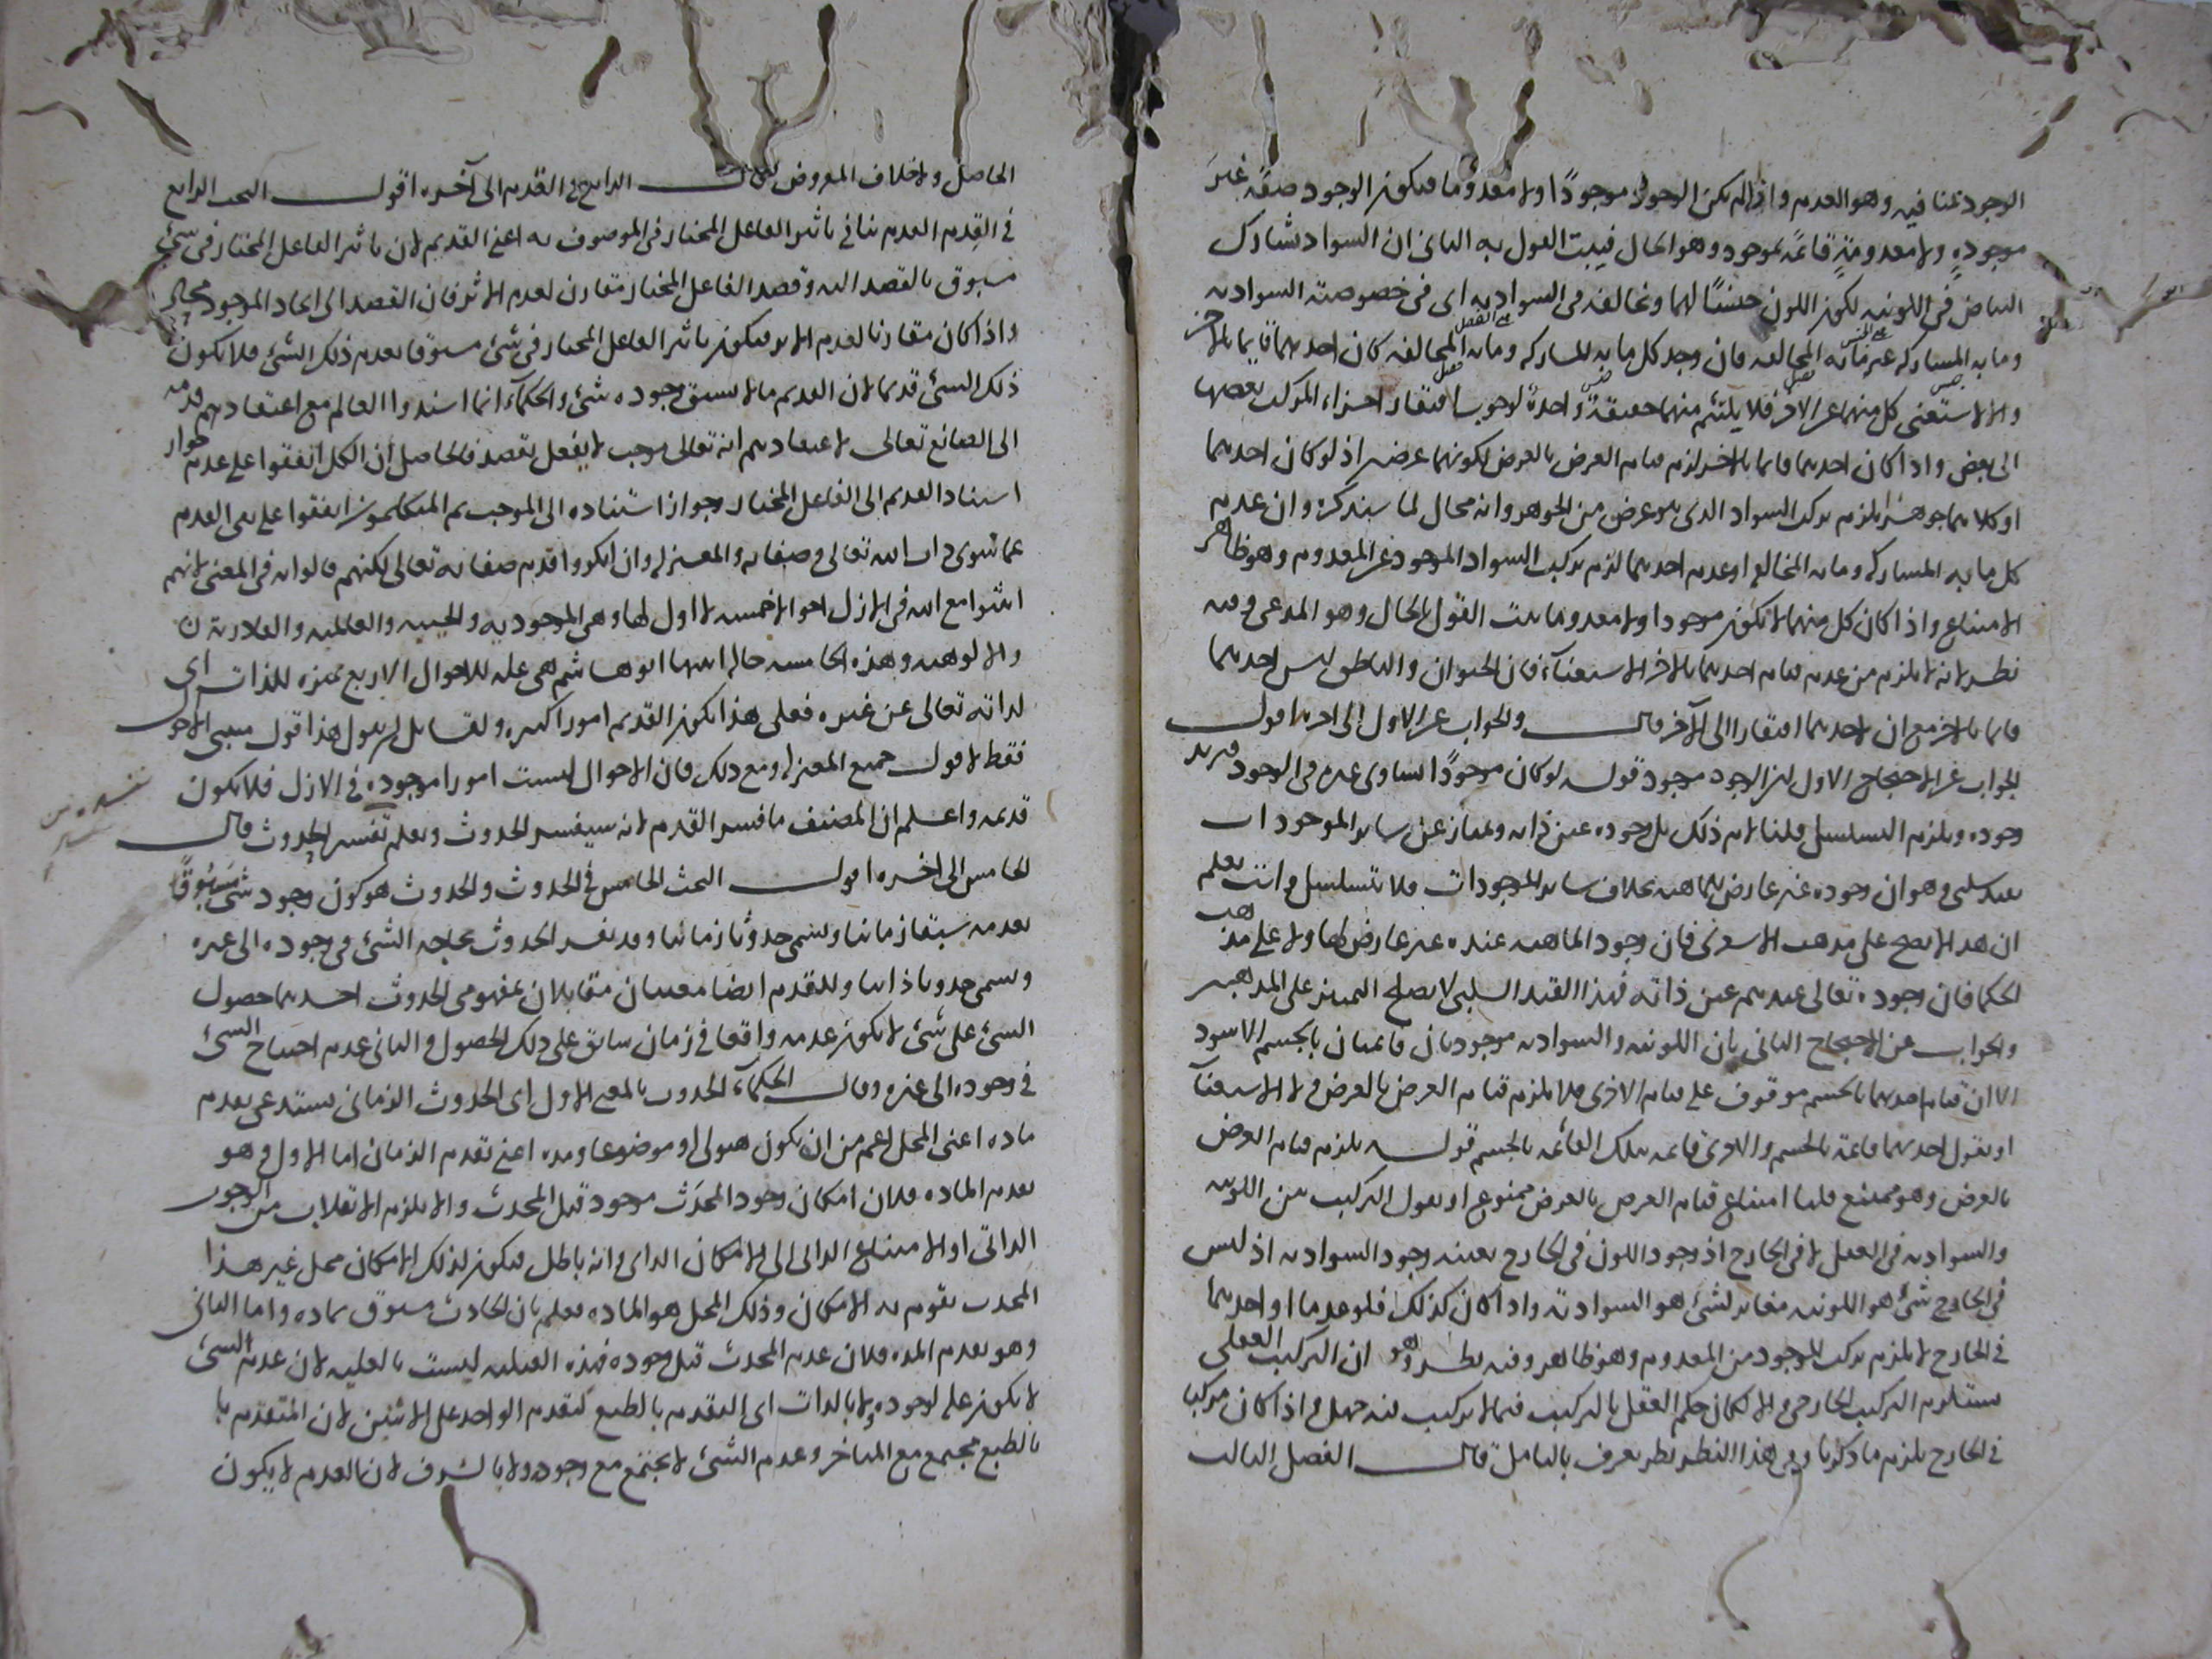 الوجود بمنافيه وهو العدم واذا لم يكن الوجود لا موجودًا ولا معدوما فيكون الوجود صفة غيرَ
موجودةٍ ولا معدومةٍ قائمة بموجود وهو الحال فيثبت القول به الثانى ان السواد شارك
البياض فى اللونيه لكون اللون جنسًا لهما وتخالفه فى السواديه اى فى خصوصية السواديه
وما به المشاركه غير ما به المخالفه فان وجد كل ما به المشاركه وما به المخالفه كان احدهما قايما بالاخر
والا لاستغنى كل منهما عن الاخر فلا يلتئم منهما حقيقة واحدة لوجوب افتقار اجزاء المركب بعضها
الى بعض واذا كان احدهما قايما بالاخر لزم قيام العرض بالعرض لكونهما عرضين اذ لو كان احدهما
او كلاهما جوهرًا يلزم تركب السواد الذى هو عرض من الجوهر وانه محال لما سنذكره وان عدم
كل ما به المشاركه وما به المخالفه او عدم احدهما لزم تركيب السواد الموجود عن المعدوم وهو ظاهر
الامتناع واذا كان كل منهما لا يكون موجودا ولا معدوما يثبت القول بالحال وهو المدعى وفيه
نظر لانه لا يلزم من عدم قيام احدهما بالاخر الاستغناء فان الحيوان والناطق ليس احدهما
قايما بالاخر مع ان لاحدهما افتقارا الى الآخر قال والجواب عن الاول الى اخره اقول
الجواب عن الاحتجاج الاول ان الوجود موجود قوله لو كان موجودًا لساوى غيره فى الوجود فيزيد
وجوده ويلزم التسلسل قلنا لانم ذلك بل وجوده عين ذاته ويمتاز عن ساير الموجودات
بقيد سلبى وهو ان وجوده غير عارض للماهيه بخلاف ساير الموجودات فلا تتسلسل وانت تعلم
ان هذا لا يصح على مذهب الاشعرى فان وجود الماهيه عنده غير عارض لها ولا على مذهب
الحكما فان وجوده تعالى عندهم عين ذاته فهذا القيد السلبى لا يصلح للتمييز على المذهبين
والجواب عن الاحتجاج الثانى بان اللونيه والسواديه موجودتان قائمتان بالجسم الاسود
الا ان قيام احدهما بالجسم موقوف على قيام الاخرى فلا يلزم قيام العرض بالعرض ولا الاستغنآ
او نقول احدهما قائمة بالجسم والاخرى قائمه بتلك القائمه بالجسم قوله يلزم قيام العرض
بالعرض وهو ممتنع قلنا امتناع قيام العرض بالعرض ممنوع او نقول التركيب من اللونيه
والسواديه فى العقل لا فى الخارج اذ وجود اللون فى الخارج بعينه وجود السواديه اذ ليس
فى الخارج شئ هو اللونيه مغاير لشئ هو السواديه واذا كان كذلك فلو عدما او احدهما
فى الخارج لا يلزم تركب الموجود من المعدوم وهو ظاهر وفيه نظر وهو ان التركيب العقلى
يستلزم التركيب الخارجى والا لكان حكم العقل بالتركيب فيما لا تركيب فيه جهل واذا كان مركبا
فى الخارج يلزم ما ذكرنا وفى هذا النظر نظر يعرف بالتامل قال الفصل الثالث
الحاصل ولا خلاف المعروض قال الرابع فى القدم الى آخره اقول البحث الرابع
فى القِدم القدم ينافى تاثير الفاعل المختار فى الموصوف به اعنى القديم لان تاثير الفاعل المختار فى شئ
مسبوق بالقصد اليه وقصد الفاعل المختار مقارن لعدم الاثر فان القصد الى ايجاد الموجود محال
واذا كان مقارنا لعدم الاثر فيكون تاثير الفاعل المختار فى شئ مسبوقا بعدم ذلك الشئ فلا يكون
ذلك الشئ قديما لان القديم ما لا يسبق وجوده شئ والحكمآء انما اسندوا العالم مع اعتقادهم قدمه
الى الصانع تعالى لاعتقادهم انه تعالى موجب لا يفعل بقصد فالحاصل أن الكل اتفقوا على عدم جواز
اسناد القديم الى الفاعل المختار وجواز استناده الى الموجب ثم المتكلمون اتفقوا على نفى القدم
عما سوى ذات الله تعالى وصفاته والمعتزله وان انكروا قدم صفاته تعالى لكنهم قالوا به فى المعنى لانهم
اثبتوا مع الله فى الازل احوالا خمسه لا اول لها وهى الموجوديه والحييه والعالميه والقادريه
والالوهيه وهذه الخامسه حاله اثبتها ابو هاشم هى علة للاحوال الاربع مميزه للذات اى
لذاته تعالى عن غيره فعلى هذا يكون القديم امورا كثيره ولقائل ان يقول هذا قول مثبتى الاحوال
فقط لا قول جميع المعتزله ومع ذلك فان الاحوال ليست امورا موجوده فى الازل فلا يكون
قديمه واعلم ان المصنف ما فسر القدم لانه سيفسر الحدوث ويعلم تفسير الحدوث قال
الخامس الى اخره اقول البحث الخامس فى الحدوث والحدوث هو كون وجود شئ مَسْبُوقًا
بعدمه سبقا زمانيا ويسمى حدوثا زمانيا وقد يفسر الحدوث بحاجة الشئ فى وجوده الى غيره
ويسمى حدوثا ذاتيا وللقدم ايضا معنيان مقابلان لمفهومى الحدوث احدهما حصول
الشئ على شئ لا يكون عدمه واقعا فى زمان سابق على ذلك الحصول والثانى عدم احتياج الشئ
فى وجوده الى غيره وقال الحكمآء الحدوث بالمعنى الاول اى الحدوث الزمانى يستدعى تقدم
ماده اعنى المحل اعم من ان يكون هيولى او موضوعا ومده اعنى تقدم الزمان اما الاول وهو
تقدم الماده فلان امكان وجود المحدَث موجود قبل المحدث والا يلزم الانقلاب من الوجوب
الذاتى او الامتناع الذاتى الى الامكان الذاتى وانه باطل فيكون لذلك الامكان محل غير هذا
المحدث يقوم به الامكان وذلك المحل هو الماده فعلم بان الحادث مسبوق بماده واما الثانى
وهو تقدم المده فلان عدم المحدث قبل وجوده فهذه القبليه ليست بالعليه لان عدم الشئ
لا يكون علة لوجوده ولا بالذات اى التقدم بالطبع كتقدم الواحد على الاثنين لان المتقدم با
بالطبع مجتمع مع المتاخر وعدم الشئ لا يجتمع مع وجوده ولا بالشرف لان العدم لا يكون